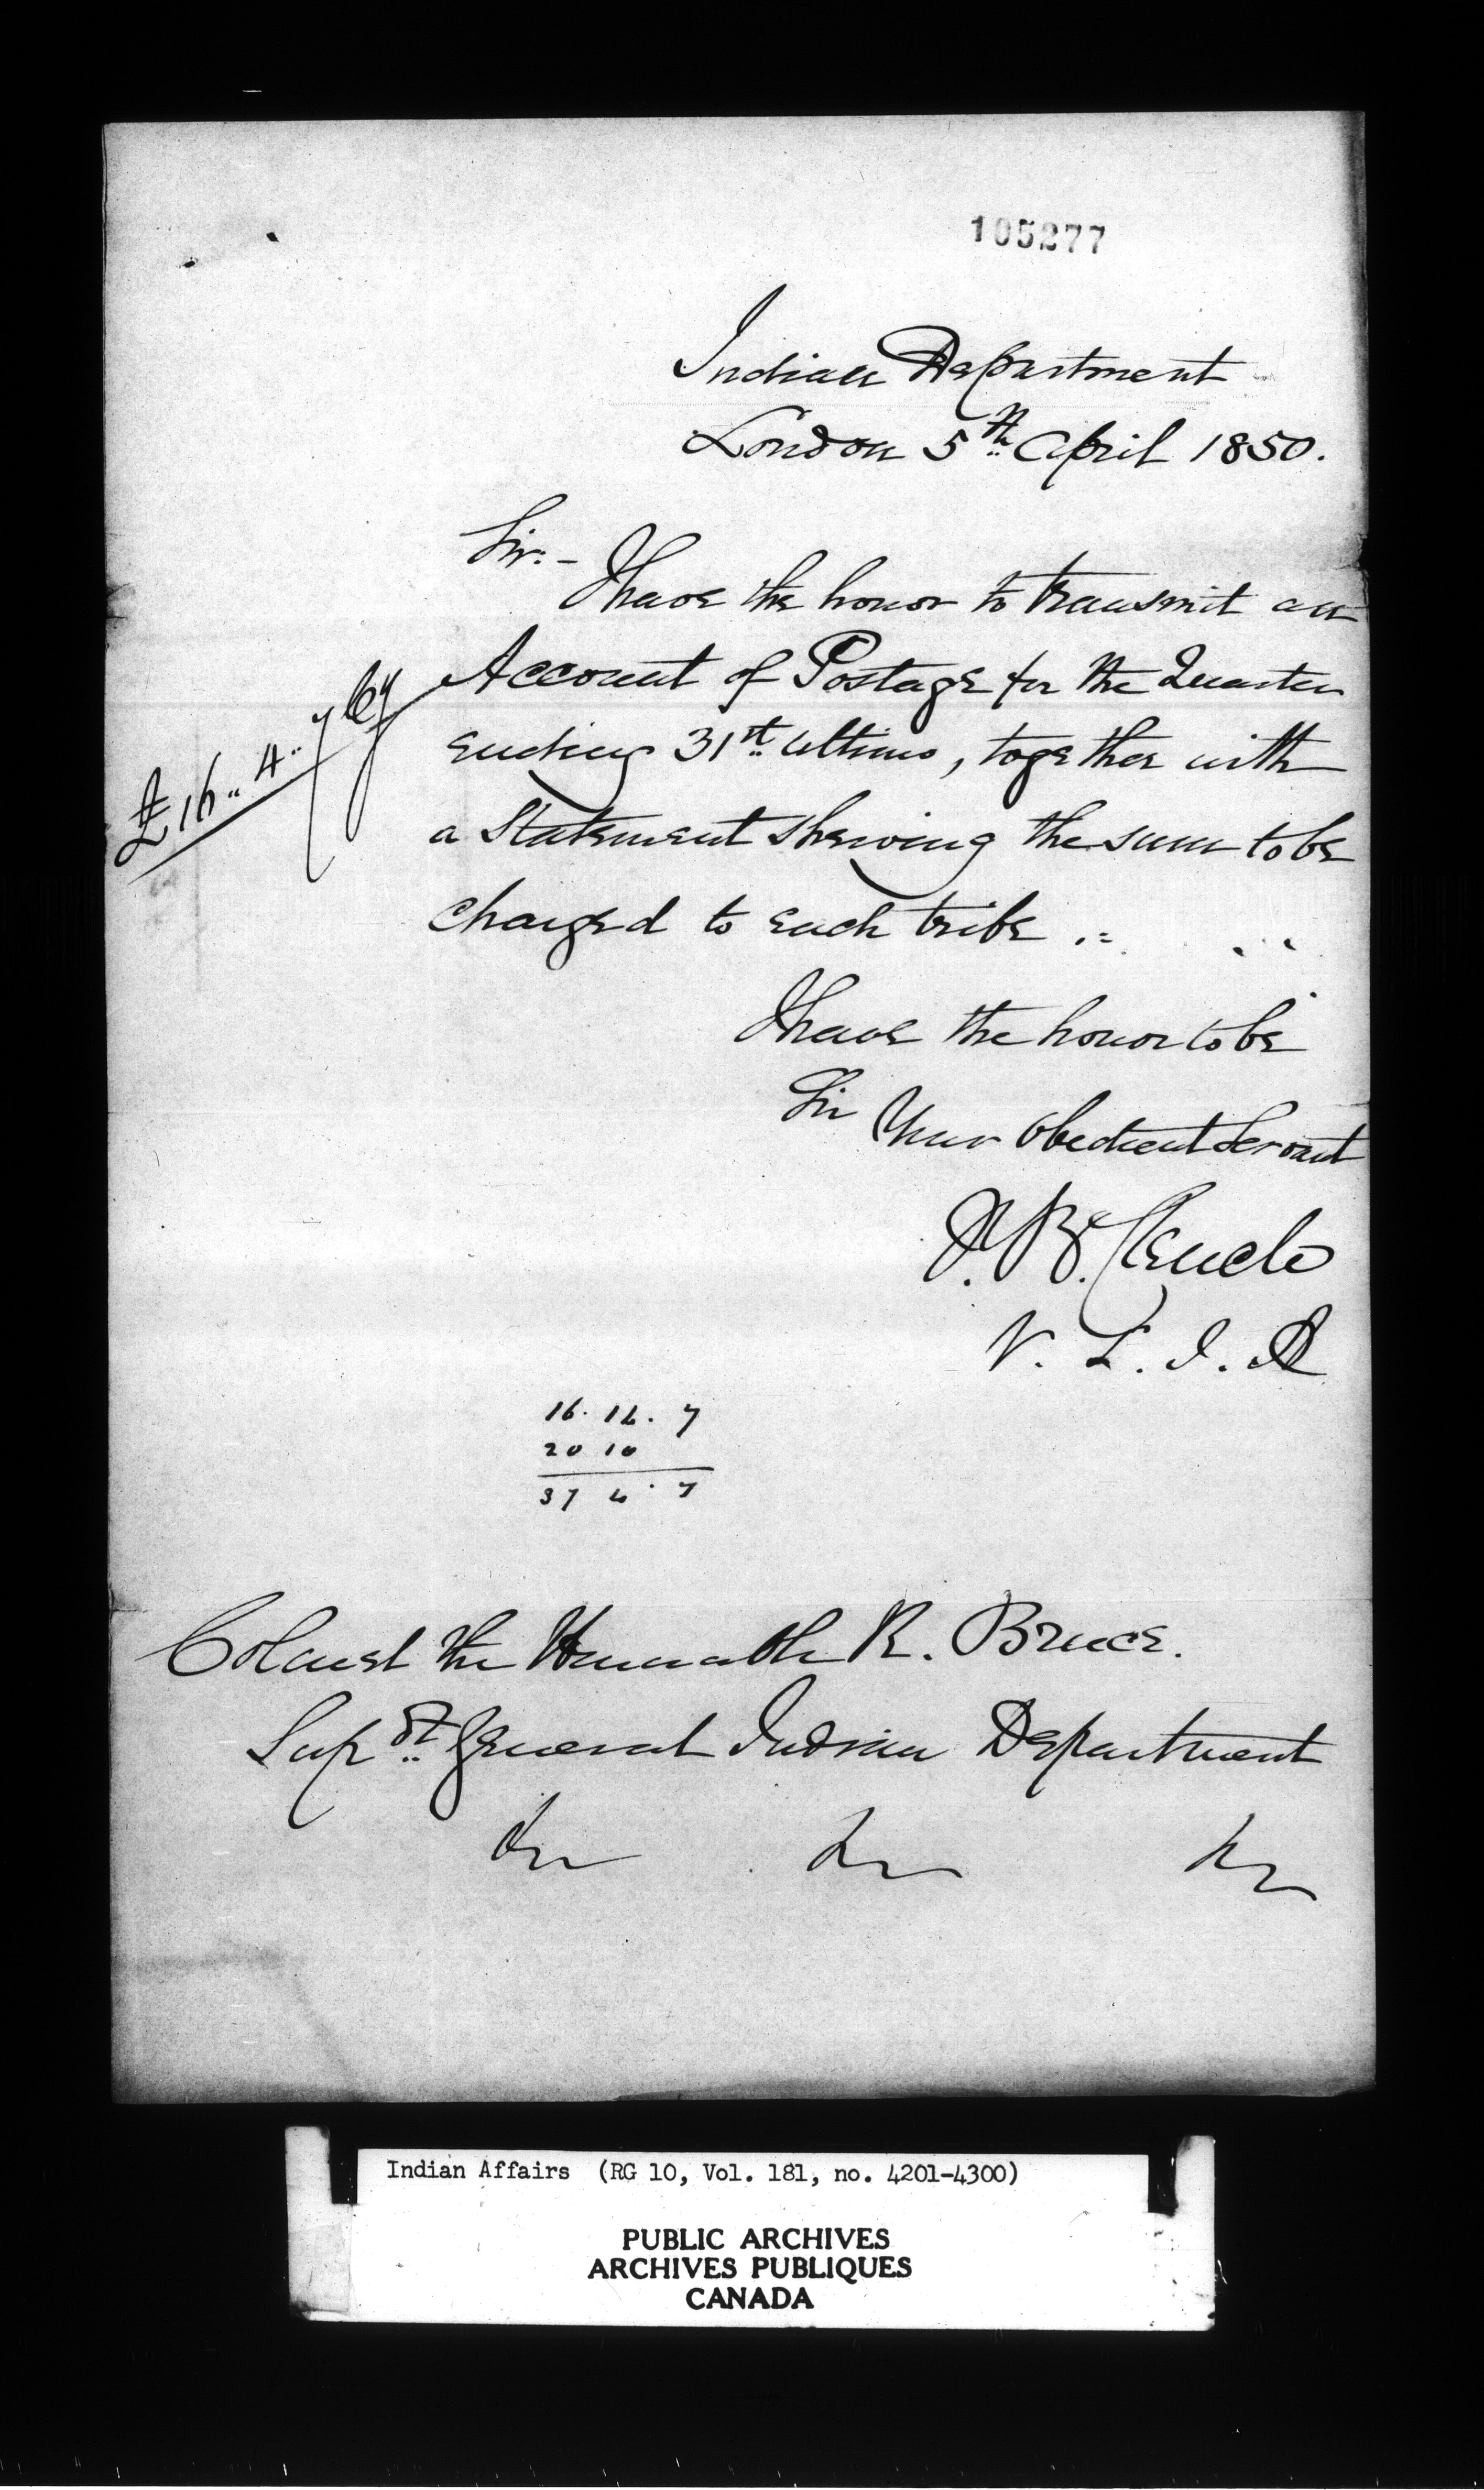 105277
Indian Department
London 5th April 1850.
Sir:-
I have the honor to transmit an
Account of Postage for the Quarter
ending 31st Ultimo, together with
a Statement shewing the sum to be
charged to each tribe
£16.. 4..
I have the honor to be
Sir Your Obedient Servant
J. B. Clench
V. S. I. A
16. 14. 7
20 10
37 4. 7
Colonel the Honorable R. Bruce.
Supdt. General Indian Department
&c &c &c
Indian Affairs (RG 10, Vol. 181, no. 4201-4300)
PUBLIC ARCHIVES
ARCHIVES PUBLIQUES
CANADA